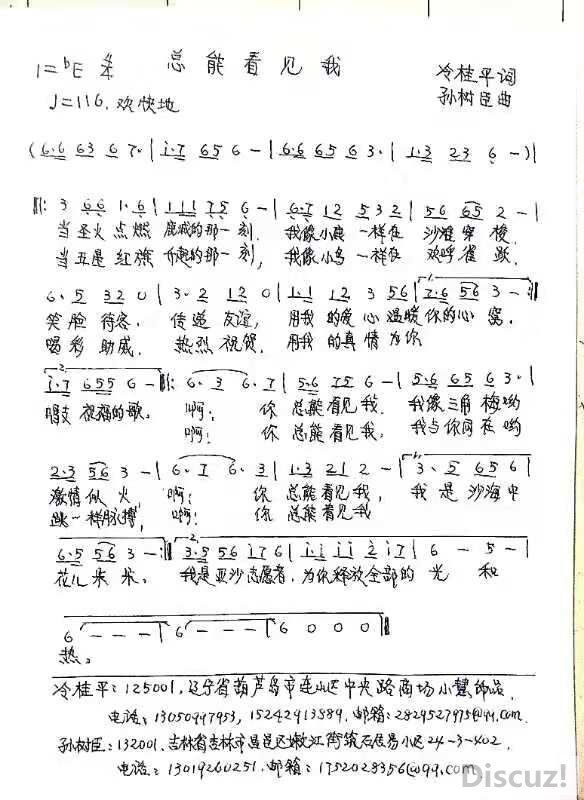 1=♭E 2/4 总能看见我
冷桂平词
♩=116. 欢快地
孙树臣曲
(6·6 63 6 7·|i·7 65 6 -|6·6 65 6 3·|1·3 23 6 -)|
‖: 3 66 1·6|111 75 6 -|6·7 12 532|56 65 2 -|
当圣火点燃 鹿城的那一刻, 我像小鹿一样在 沙滩穿梭.
当五星红旗 升起的那一刻, 我像小鸟一样在 欢呼雀跃.
6·5 32 0|3·2 12 0|1·1 12 3 56|7·6 56 3 -:‖
笑脸待客, 传递友谊, 用我的爱心温暖你的心窝.
喝彩助威, 热烈祝贺, 用我的真情为你
i·7 655 6 -‖: 6·3 6·7|5·6 75 6 -|5·6 65 6 3·|
唱支祝福的歌. 啊! 你总能看见我. 我像三角梅哟
啊! 你总能看见我, 我与你同在哟
2·3 56 3 -|6·7 6·3|1·3 21 2 -|3·5 65 6|
激情似火, 啊! 你总能看见我, 我是沙海中
跳一样脉搏, 啊! 你总能看见我
6·5 56 3 -:‖3·5 56 i7 6|i·i ii 2 i7|6 - 5 -|
花儿朵朵. 我是亚沙志愿者, 为你释放全部的光和
6 - - -|6 - - -|6 0 0 0‖
热。
冷桂平:125001,辽宁省葫芦岛市连山区中央路商场小慧饰品.
电话:13050997953, 15242913889. 邮箱:2829527975@qq.com.
孙树臣:132001.吉林省吉林市昌邑区嫩江街筑石居易小区24-3-402.
电话:13019260251.邮箱:1752028356@qq.com.
Discuz!